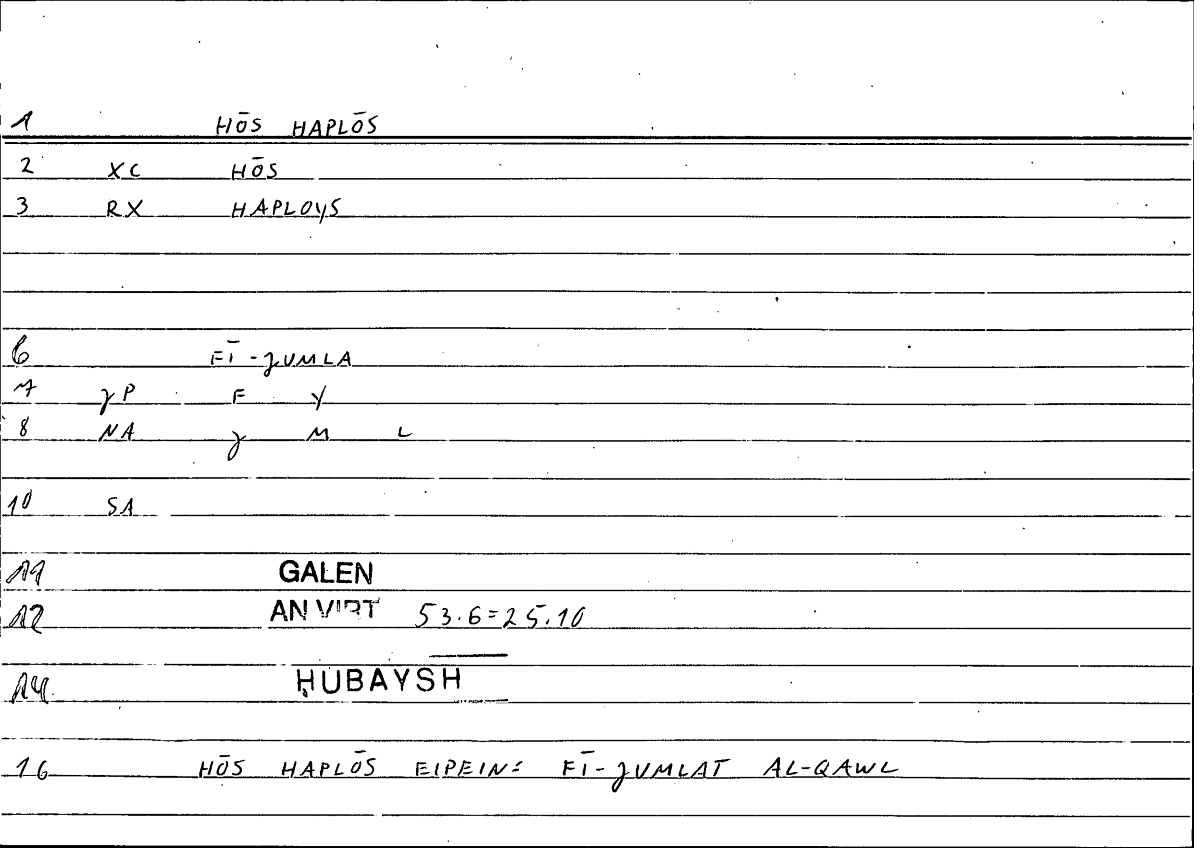 1 HŌS HAPLŌS
2 XC HŌS
3 RX HAPLOYS
6 FĪ-JUMLA
7 JP F Y
8 NA J M L
10 SA
11 GALEN
12 AN VIRT 53.6=25.10
14 ḤUBAYSH
16 HŌS HAPLŌS EIPEIN: FĪ-JUMLAT AL-QAWL